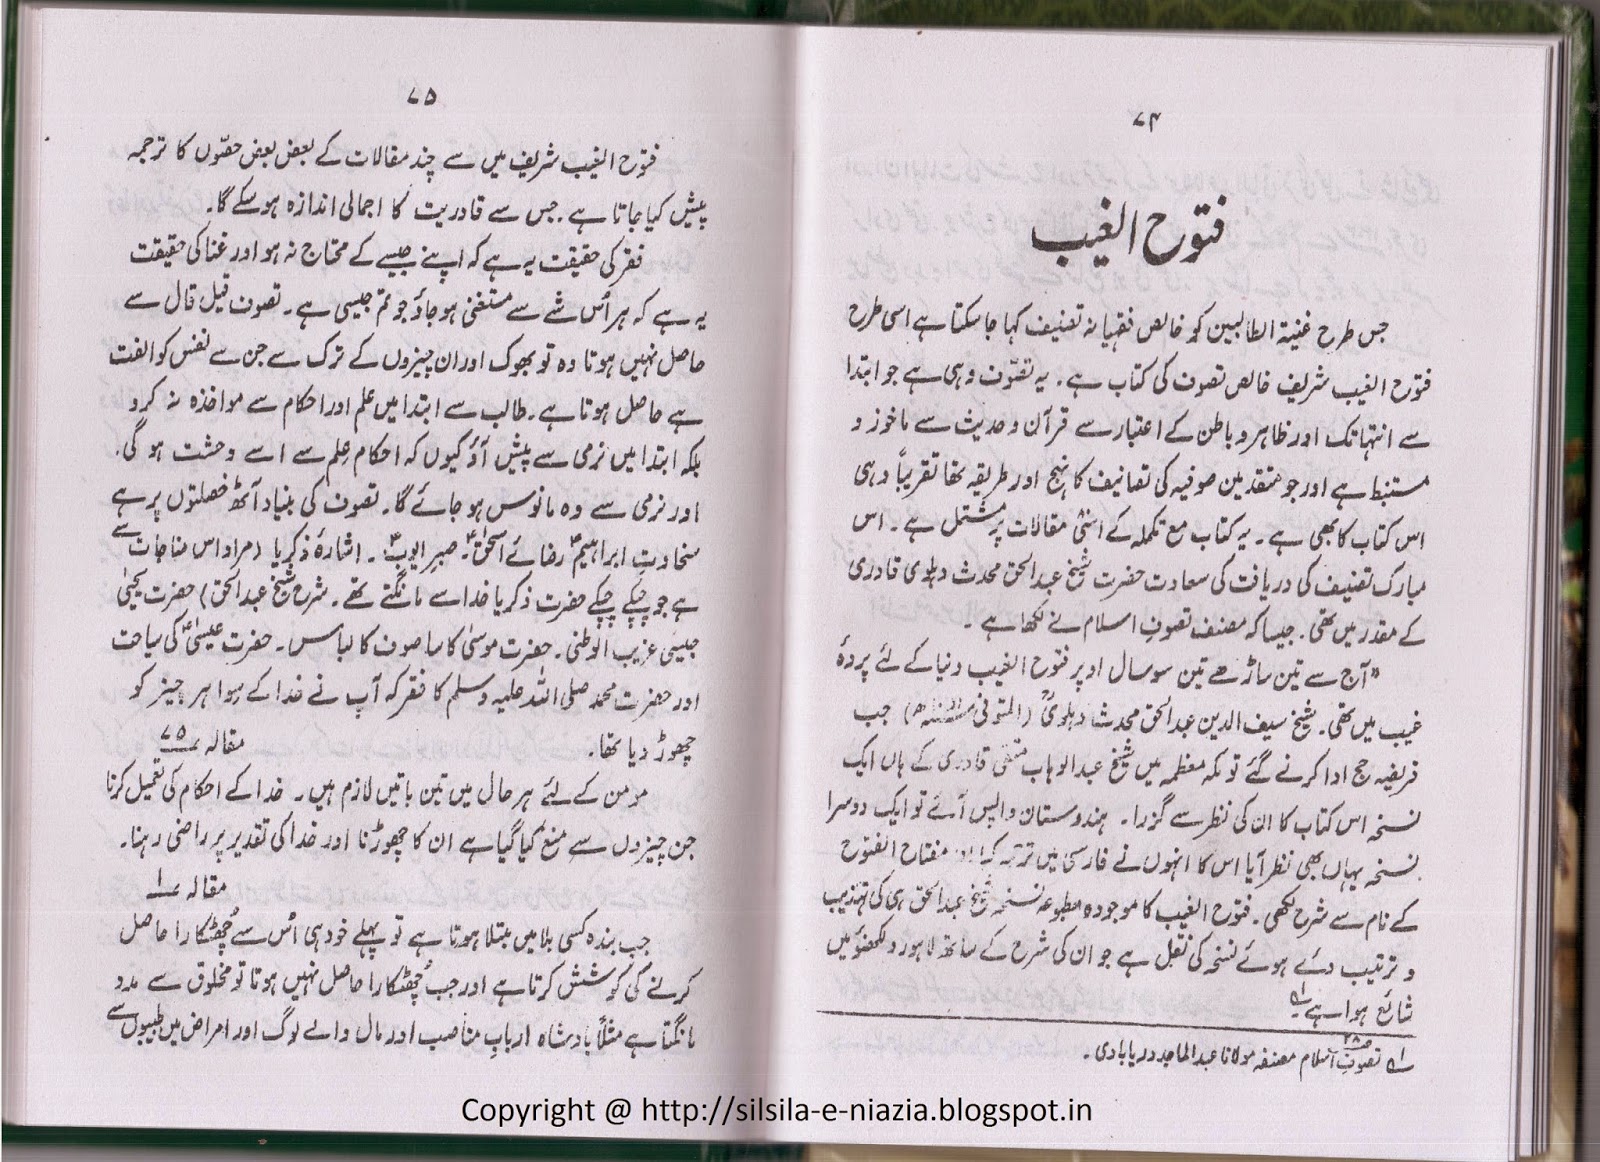 ۷۴
فتوح الغیب
جس طرح غنیۃ الطالبین کو خالص فقہیانہ تصنیف کہا جا سکتا ہے اسی طرح
فتوح الغیب شریف خالص تصوف کی کتاب ہے۔ یہ تصوّف وہی ہے جو ابتدا
سے انتہا تک اور ظاہر و باطن کے اعتبار سے قرآن و حدیث سے ماخوذ و
مستنبط ہے اور جو متقدمین صوفیہ کی تصانیف کا نہج اور طریقہ تھا تقریباً وہی
اس کتاب کا بھی ہے۔ یہ کتاب مع تکملہ کے اسّی مقالات پر مشتمل ہے۔ اس
مبارک تصنیف کی دریافت کی سعادت حضرت شیخ عبدالحق محدث دہلوی قادری
کے مقدر میں تھی۔ جیسا کہ مصنف تصوفِ اسلام نے لکھا ہے۔
"آج سے تین ساڑھے تین سو سال اوپر فتوح الغیب دنیا کے لئے پردۂ
غیب میں تھی۔ شیخ سیف الدین عبدالحق محدث دہلویؒ (المتوفی) جب
فریضہ حج ادا کرنے گئے تو مکہ معظمہ میں شیخ عبدالوہاب متقی قادری کے ہاں ایک
نسخہ اس کتاب کا ان کی نظر سے گزرا۔ ہندوستان واپس آئے تو ایک دوسرا
نسخہ یہاں بھی نظر آیا اس کا انہوں نے فارسی میں ترجمہ کیا اور مفتاح الفتوح
کے نام سے شرح لکھی۔ فتوح الغیب کا موجودہ مطبوعہ نسخہ شیخ عبدالحق ہی کی تہذیب
و ترتیب دئے ہوئے نسخہ کی نقل ہے جو ان کی شرح کے ساتھ لاہور و لکھنؤ میں
شائع ہوا ہے۔ ۱؎
۱؎ تصوفِ اسلام ص۲۸ مصنفہ مولانا عبدالماجد دریابادی۔
۷۵
فتوح الغیب شریف میں سے چند مقالات کے بعض بعض حصّوں کا ترجمہ
پیش کیا جاتا ہے۔ جس سے قادریت کا اجمالی اندازہ ہو سکے گا۔
فقر کی حقیقت یہ ہے کہ اپنے جیسے کے محتاج نہ ہو اور غنا کی حقیقت
یہ ہے کہ ہر اُس شے سے مستغنی ہو جاؤ جو تم جیسی ہے۔ تصوف قیل قال سے
حاصل نہیں ہوتا وہ تو بھوک اور ان چیزوں کے ترک سے جن سے نفس کو الفت
ہے حاصل ہوتا ہے۔ طالب سے ابتدا میں علم اور احکام سے مواخذہ نہ کرو
بلکہ ابتدا میں نرمی سے پیش آؤ کیوں کہ احکام علم سے اسے وحشت ہو گی۔
اور نرمی سے وہ مانوس ہو جائے گا۔ تصوف کی بنیاد آٹھ خصلتوں پر ہے
سخاوتِ ابراہیمؑ رضائے اسحٰقؑ۔ صبرِ ایوبؑ۔ اشارۂ ذکریا (مراد اس مناجات سے
ہے جو چپکے چپکے حضرت ذکریا خدا سے مانگتے تھے۔ شرح شیخ عبدالحق) حضرت یحییٰ
جیسی غریب الوطنی۔ حضرت موسیٰ کا سا صوف کا لباس۔ حضرت عیسیٰؑ کی سیاحت
اور حضرت محمد صلی اللہ علیہ وسلم کا فقر کہ آپ نے خدا کے سوا ہر چیز کو
چھوڑ دیا تھا۔
مقالہ ۷۵
مومن کے لئے ہر حال میں تین باتیں لازم ہیں۔ خدا کے احکام کی تعمیل کرنا
جن چیزوں سے منع کیا گیا ہے ان کا چھوڑنا اور خدا کی تقدیر پر راضی رہنا۔
مقالہ ۱
جب بندہ کسی بلا میں مبتلا ہوتا ہے تو پہلے خود ہی اُس سے چُھٹکارا حاصل
کرنے کی کوشش کرتا ہے اور جب چُھٹکارا حاصل نہیں ہوتا تو مخلوق سے مدد
مانگتا ہے مثلاً بادشاہ اربابِ مناصب اور مال والے لوگ اور امراض میں طبیبوں سے
Copyright @ http://silsila-e-niazia.blogspot.in